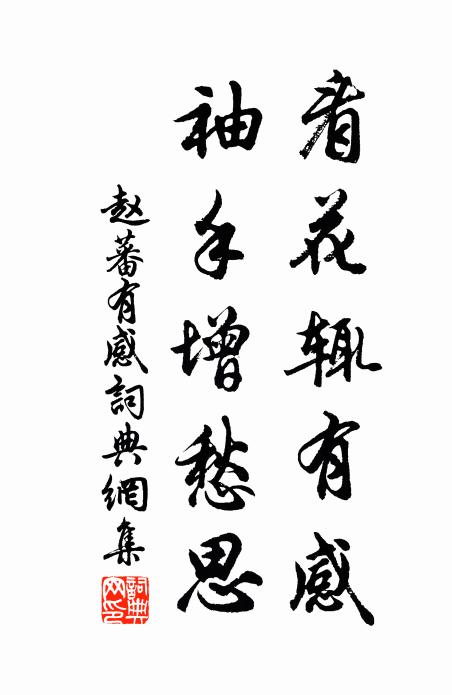 看花辄有感
袖手增愁思
赵蕃有感詞典網集
詞典網印